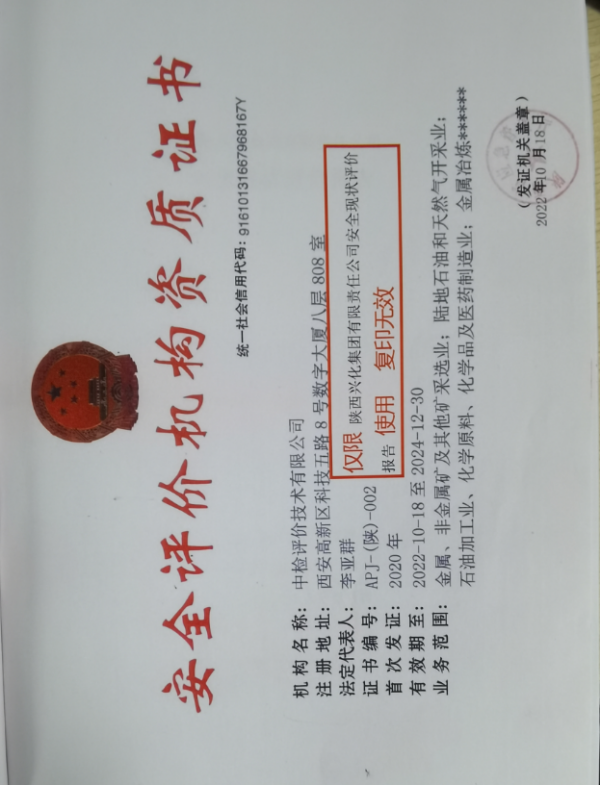 安全评价机构资质证书
统一社会信用代码：91610131667968167Y
机构名称：中检评价技术有限公司
注册地址：西安高新区科技五路8号数字大厦八层808室
法定代表人：李亚群
证书编号：APJ-(陕)-002
首次发证：2020年
有效期至：2022-10-18至2024-12-30
业务范围：金属、非金属矿及其他矿采选业；陆地石油和天然气开采业；
石油加工业、化学原料、化学品及医药制造业；金属冶炼******
仅限 陕西兴化集团有限责任公司安全现状评价
报告 使用 复印无效
（发证机关盖章）
2022年10月18日